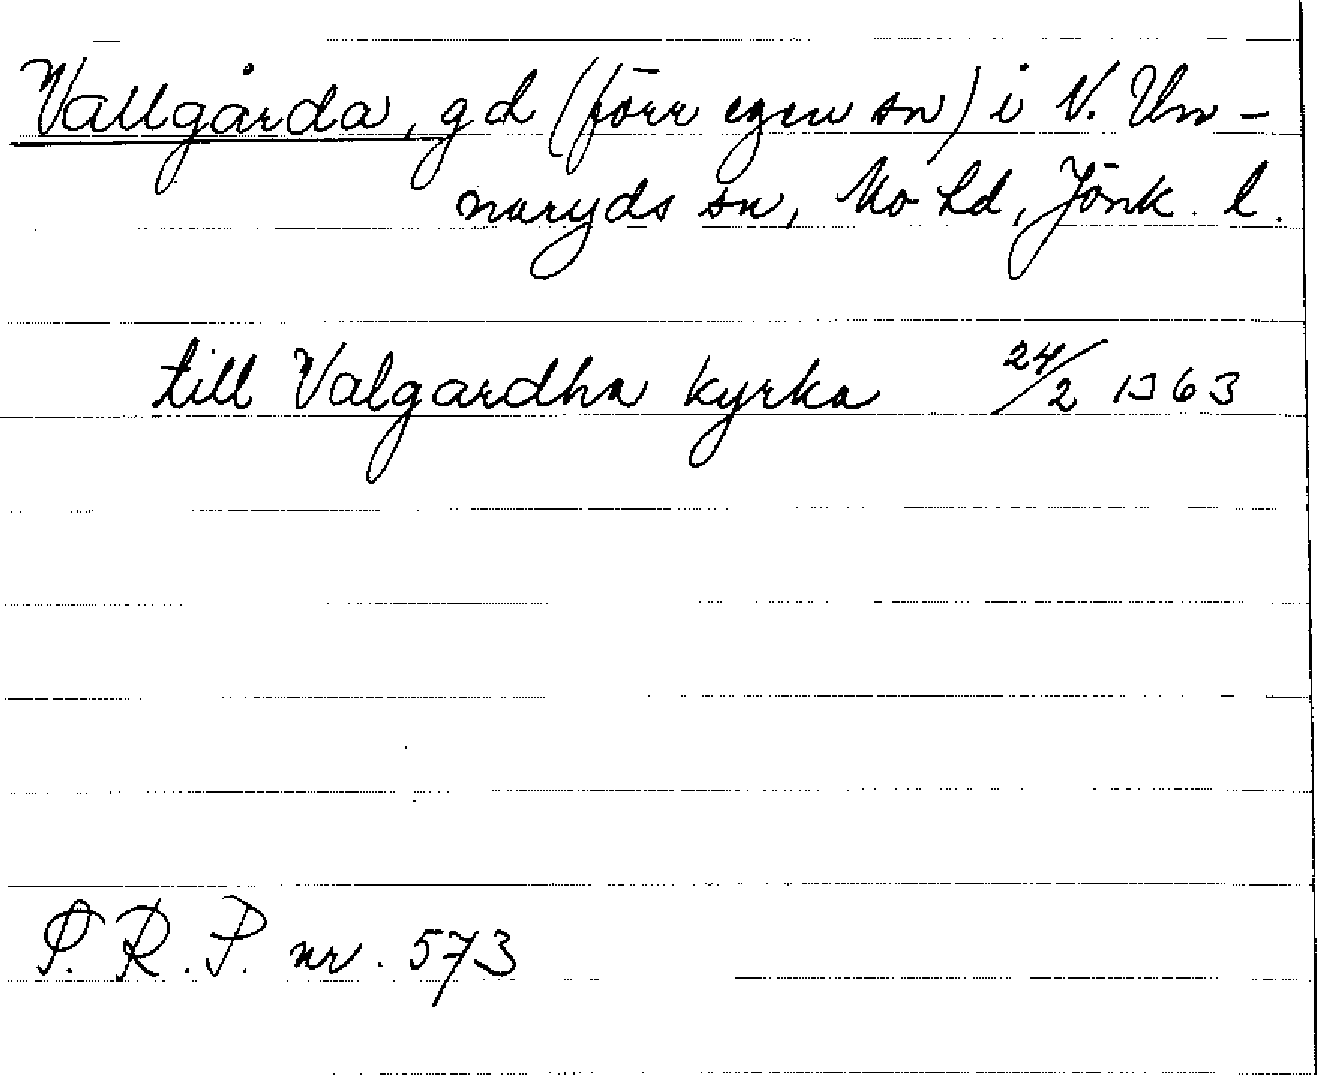 Vallgårda, gd (förr egen sn) i N. Un-
naryds sn, Mo hd, Jönk. l.
till Valgardha kyrka 24/2 1363
P. R. P. nr. 573